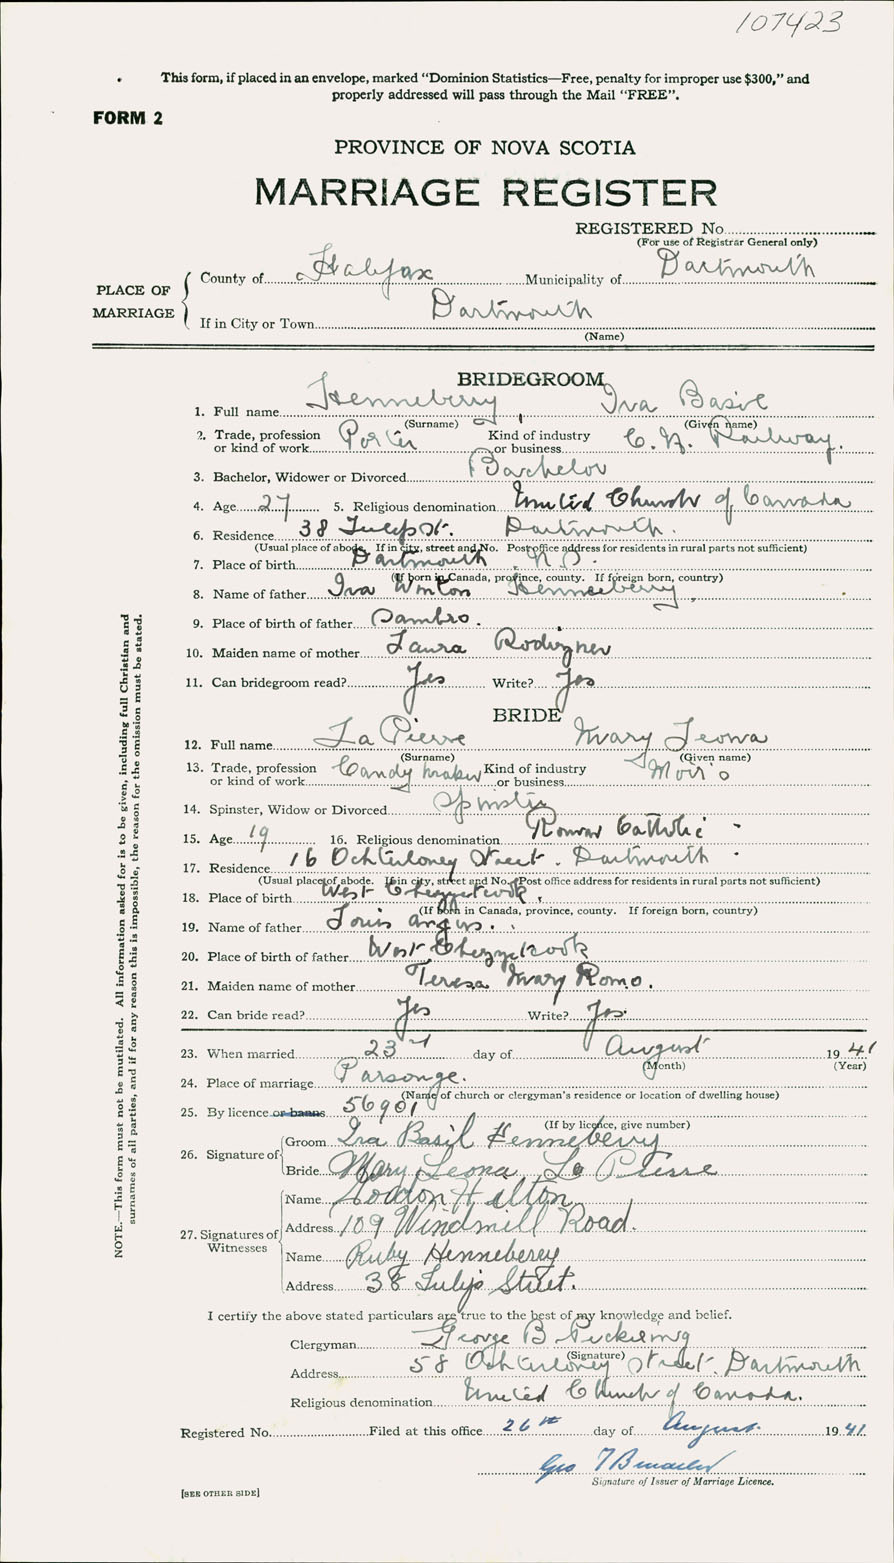 107423
This form, if placed in an envelope, marked "Dominion Statistics—Free, penalty for improper use $300," and
properly addressed will pass through the Mail "FREE".
FORM 2
PROVINCE OF NOVA SCOTIA
MARRIAGE REGISTER
REGISTERED No.
(For use of Registrar General only)
PLACE OF MARRIAGE
County of Halifax Municipality of Dartmouth
If in City or Town Dartmouth
(Name)
BRIDEGROOM
1. Full name Henneberry Ira Basil
(Surname) (Given name)
2. Trade, profession or kind of work Porter Kind of industry or business C. N. Railway.
3. Bachelor, Widower or Divorced Bachelor
4. Age 27 5. Religious denomination United Church of Canada
6. Residence 38 Tulip St. Dartmouth.
(Usual place of abode. If in city, street and No. Post office address for residents in rural parts not sufficient)
7. Place of birth Dartmouth N.S.
(If born in Canada, province, county. If foreign born, country)
8. Name of father Ira Henneberry
9. Place of birth of father Sambro.
10. Maiden name of mother Laura
11. Can bridegroom read? Yes Write? Yes
BRIDE
12. Full name La Pierre Mary Leona
(Surname) (Given name)
13. Trade, profession or kind of work Candy maker Kind of industry or business Moir's
14. Spinster, Widow or Divorced Spinster
15. Age 19 16. Religious denomination Roman Catholic
17. Residence 16 Ochterloney Street. Dartmouth
(Usual place of abode. If in city, street and No. Post office address for residents in rural parts not sufficient)
18. Place of birth West Chezzetcook.
(If born in Canada, province, county. If foreign born, country)
19. Name of father Louis Angus.
20. Place of birth of father West Chezzetcook
21. Maiden name of mother Teresa Mary Romo.
22. Can bride read? Yes Write? Yes.
23. When married 23rd day of August 1941
(Month) (Year)
24. Place of marriage Parsonge.
(Name of church or clergyman's residence or location of dwelling house)
25. By licence or banns 56901
(If by licence, give number)
26. Signature of
Groom Ira Basil Henneberry
Bride Mary Leona La Pierre
27. Signatures of Witnesses
Name Hilton
Address 109 Windmill Road.
Name Ruby Henneberry
Address 38 Tulip Street.
I certify the above stated particulars are true to the best of my knowledge and belief.
Clergyman George B
(Signature)
Address 58 Ochterloney Street. Dartmouth
Religious denomination United Church of Canada.
Registered No. Filed at this office 26th day of August 1941
Geo
Signature of Issuer of Marriage Licence.
[SEE OTHER SIDE]
NOTE.—This form must not be mutilated. All information asked for is to be given, including full Christian and
surnames of all parties, and if for any reason this is impossible, the reason for the omission must be stated.